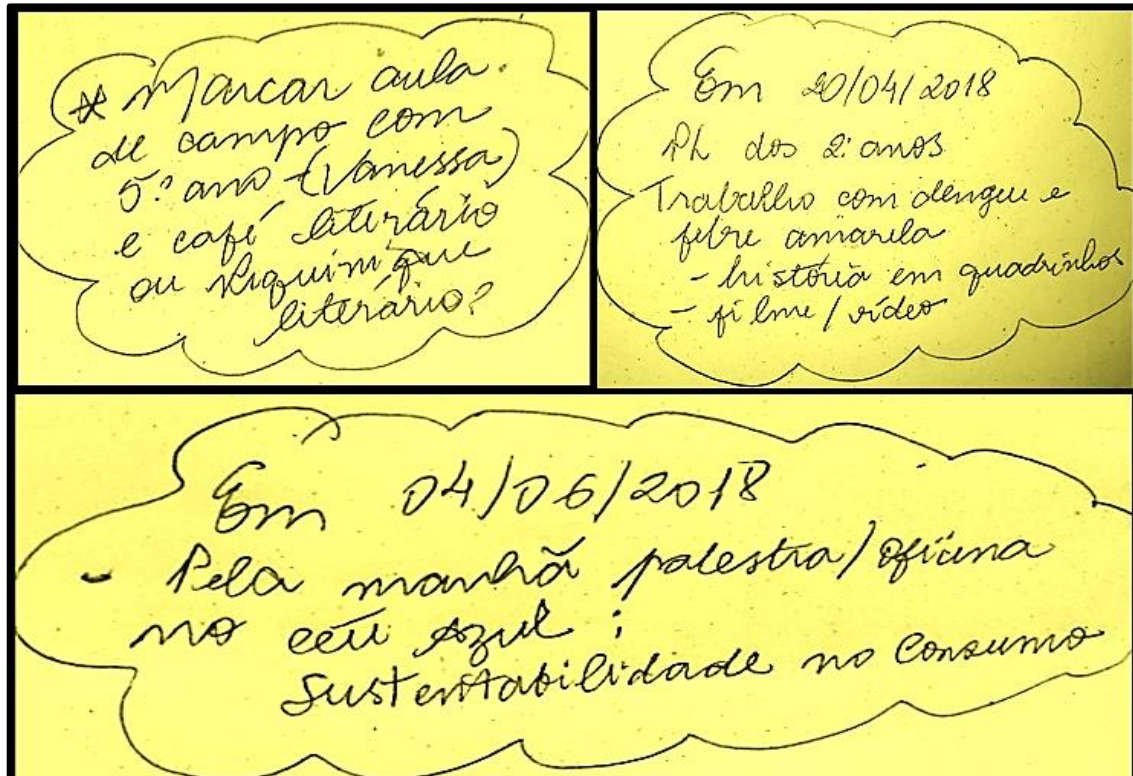 * Marcar aula
de campo com
5º ano (Vanessa)
e café literário
ou piquinique
literário?
Em 20/04/2018
PL dos 2ºs anos
Trabalho com dengue e
febre amarela
- história em quadrinhos
- filme / vídeo
Em 04/06/2018
- Pela manhã palestra/oficina
no céu azul:
Sustentabilidade no Consumo